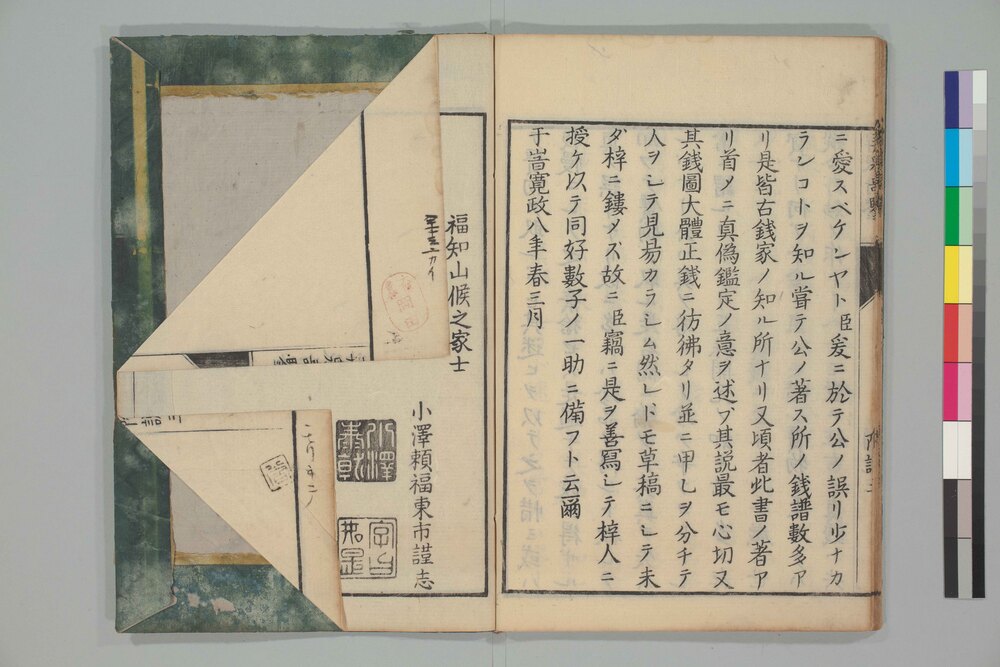 ニ愛スベケンヤト臣爰ニ於テ公ノ誤リ少ナカ
ランコトヲ知ル嘗テ公ノ著ス所ノ銭譜数多ア
リ是皆古銭家ノ知ル所ナリ又頃者此書ノ著ア
リ首メニ真偽鑑定ノ意ヲ述ブ其説最モ心切又
其銭圖大體正銭ニ彷彿タリ並ニ甲乙ヲ分チテ
人ヲシテ見易カラシム然レドモ草稿ニシテ未
ダ梓ニ鏤メズ故ニ臣竊ニ是ヲ善寫シテ梓人ニ
授ケ以テ同好數子ノ一助ニ備フト云爾
于峕寛政八年春三月
福知山候之家士
小澤頼福東市謹志